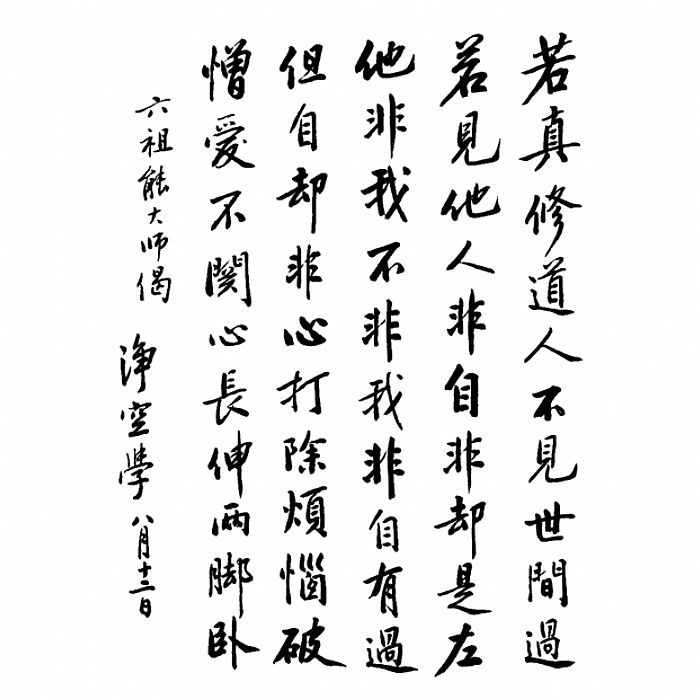 若真修道人不見世間過
若見他人非自非却是左
他非我不非我非自有過
但自却非心打除煩惱破
憎愛不關心長伸兩脚卧
六祖能大师偈
淨空學 八月十二日